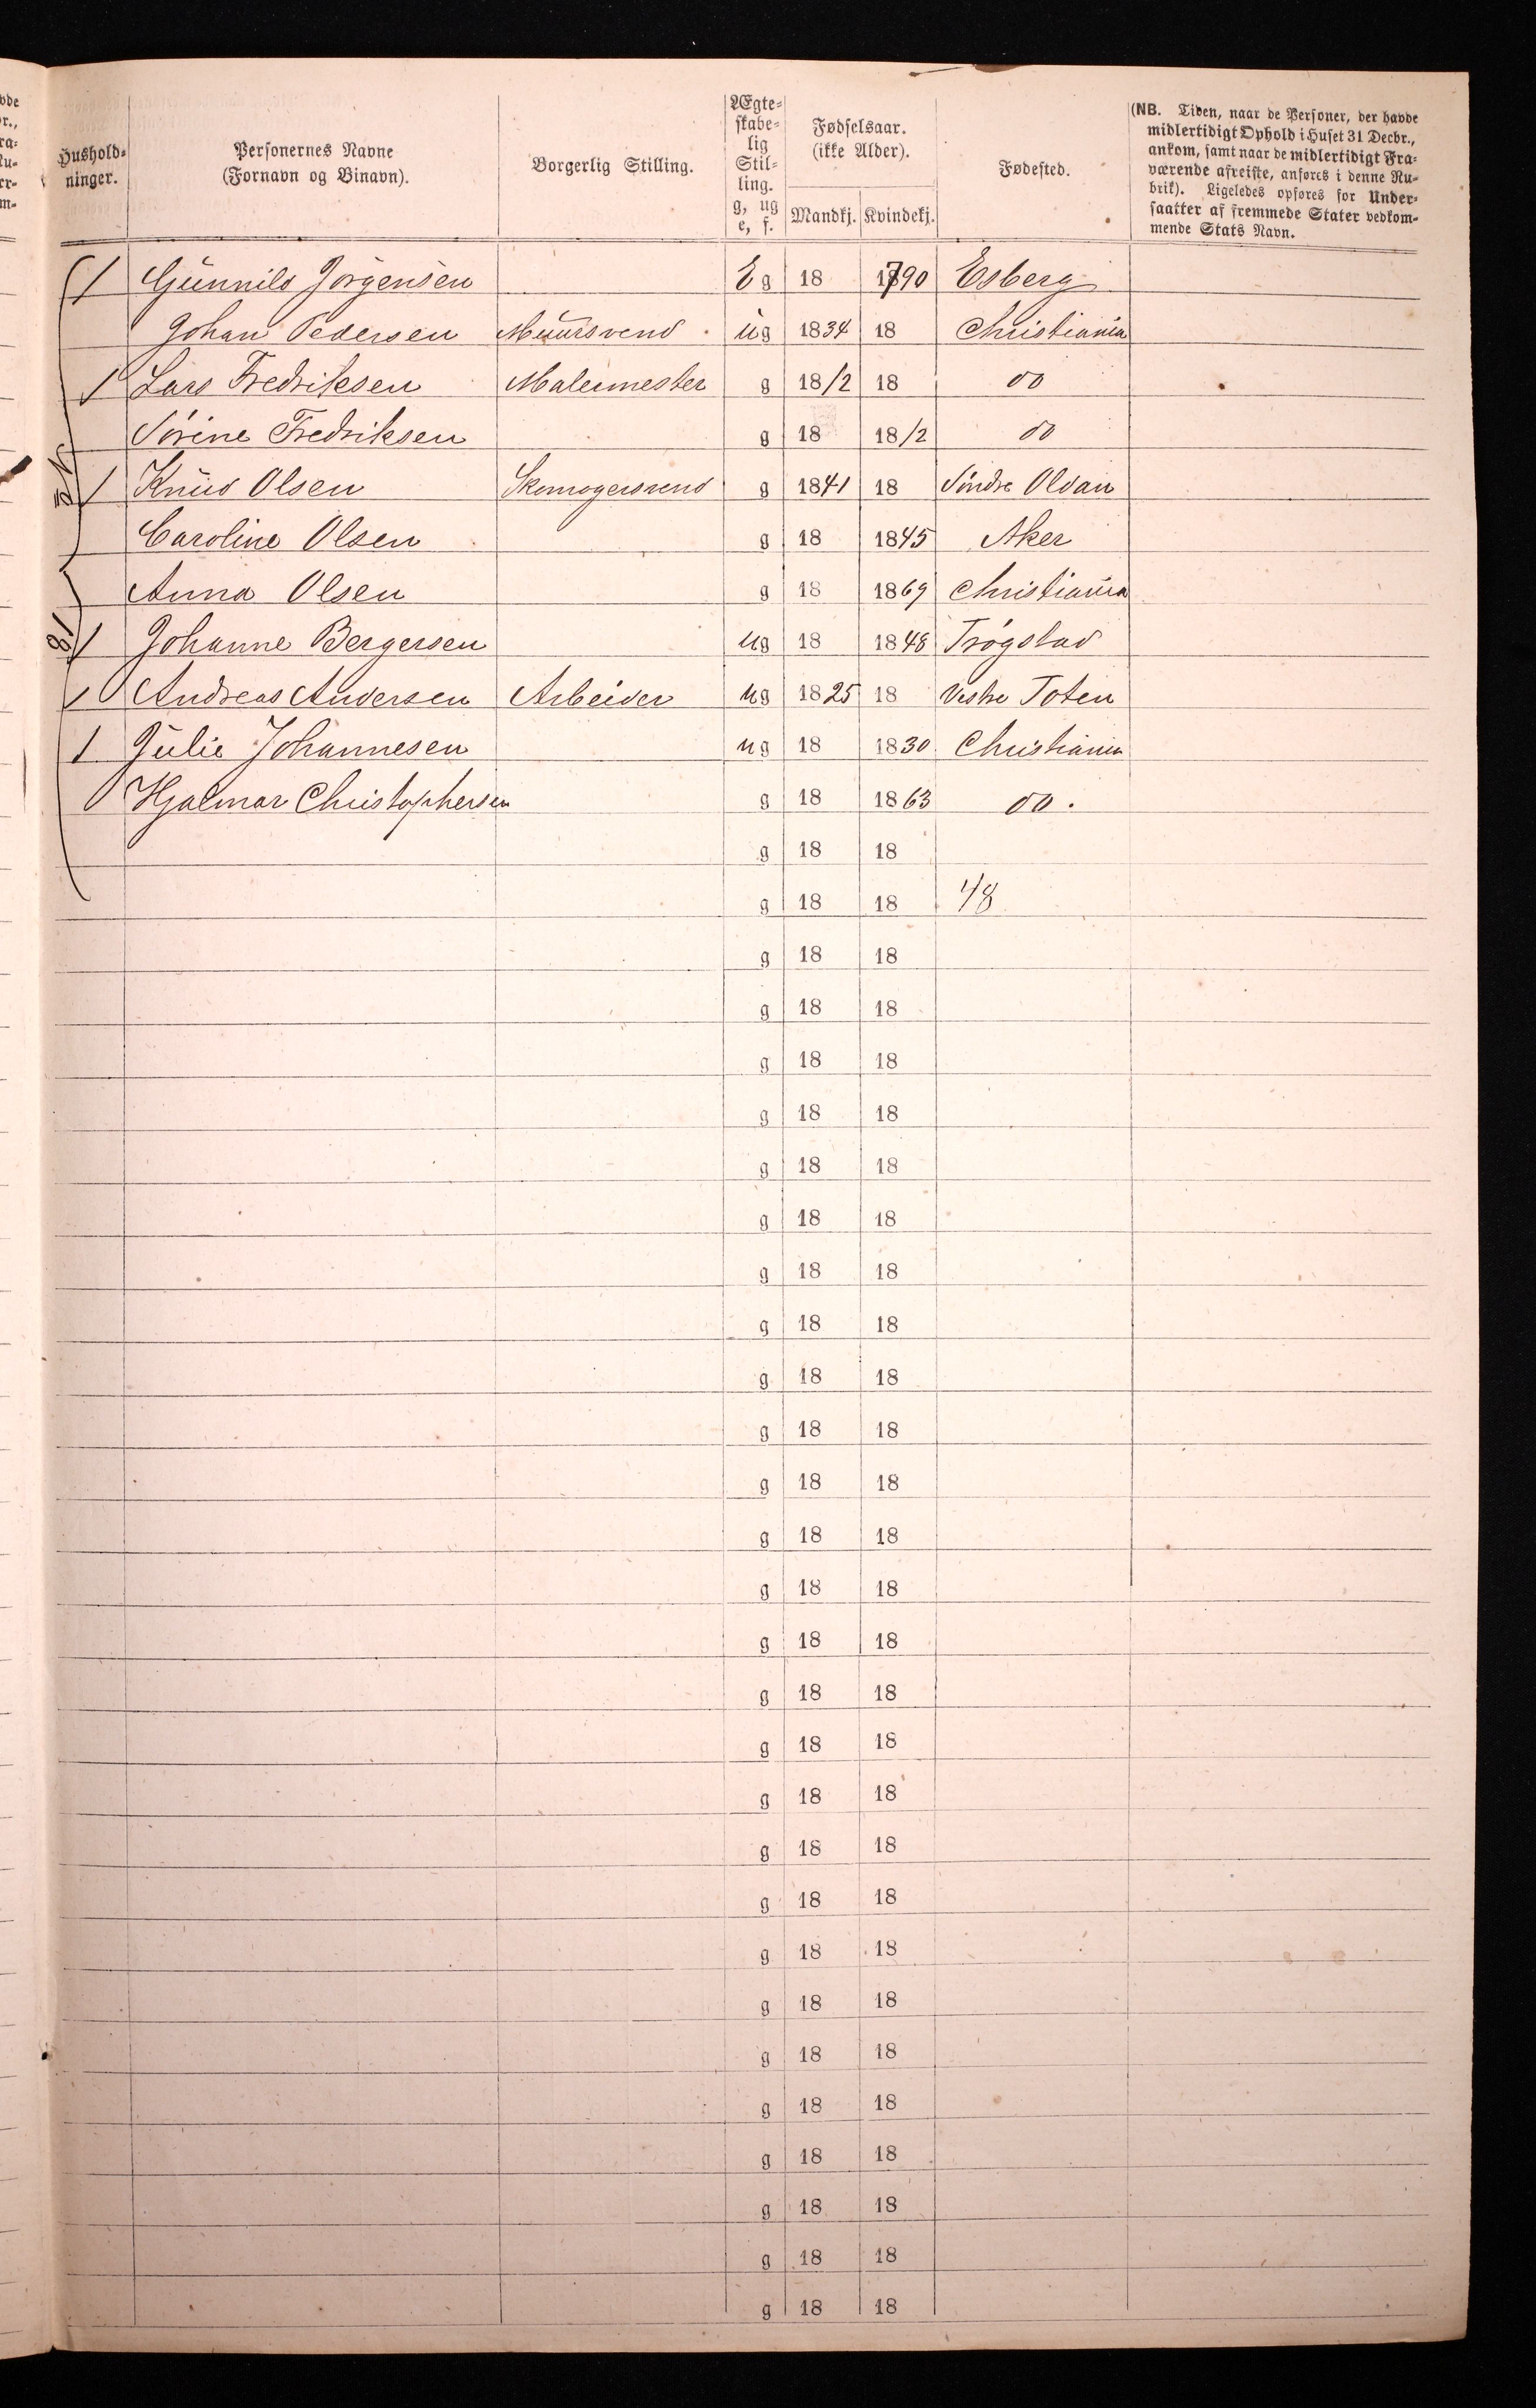 Hushold-
ninger.
Personernes Navne
(Fornavn og Binavn).
Borgerlig Stilling.
Ægte-
skabe-
lig
Stil-
ling.
g, ug
e, f.
Fødselsaar.
(ikke Alder).
Mandkj. Kvindekj.
Fødested.
(NB. Tiden, naar de Personer, der havde
midlertidigt Ophold i Huset 31 Decbr.,
ankom, samt naar de midlertidigt Fra-
værende afreiste, anføres i denne Ru-
brik). Ligeledes opføres for Under-
saatter af fremmede Stater vedkom-
mende Stats Navn.
1 Gunnild Jörgensen E g 18 1790 Esberg
Johan Pedersen Muursvend ug 1834 18 Christiania
1 Lars Fredriksen Malermester g 1812 18 do
Sörine Fredriksen g 18 1812 do
1 Knud Olsen Skomagersvend g 1841 18 Söndre Oldan
Caroline Olsen g 18 1845 Aker
Anna Olsen g 18 1869 Christiania
1 Johanne Bergersen ug 18 1848 Trögstad
1 Andreas Andersen Arbeider ug 1825 18 Vestre Toten
1 Julie Johannesen ug 18 1830 Christiania
Hjalmar Christophersen g 18 1863 do.
g 18 18
g 18 18 48
g 18 18
g 18 18
g 18 18
g 18 18
g 18 18
g 18 18
g 18 18
g 18 18
g 18 18
g 18 18
g 18 18
g 18 18
g 18 18
g 18 18
g 18 18
g 18 18
g 18 18
g 18 18
g 18 18
g 18 18
g 18 18
g 18 18
g 18 18
g 18 18
g 18 18
g 18 18
g 18 18